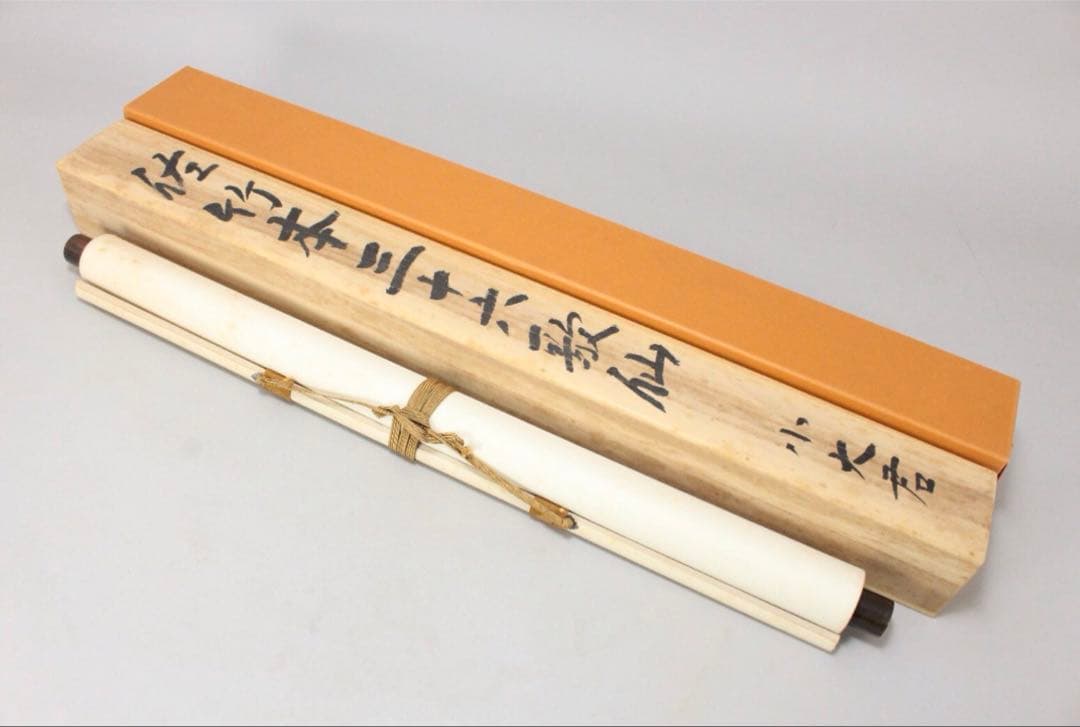 佐竹本三十六歌仙
小大君